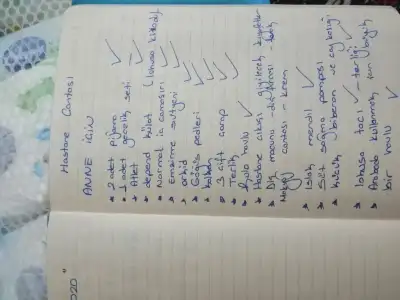 Hastane Çantası
ANNE İÇİN
* 2 adet pijama
* 1 adet gecelik seti
* Atlet
* depend külot (lohusa külodu)
* Normal iç çamaşırı
* Emzirme sütyeni
* orkid
* Göğüs pedleri
* 3 çift çorap
* Terlik
* Hastane çıkışı giyilecek kıyafetler
* Diş macunu - diş fırçası - tarak
Makyaj çantası - krem
* Islak mendil
* Süt sağma pompası
* küçük biberon ve çay kaşığı
* lohusa tacı - terliği
* Arabada kullanmak için büyük
bir havlu
2020"